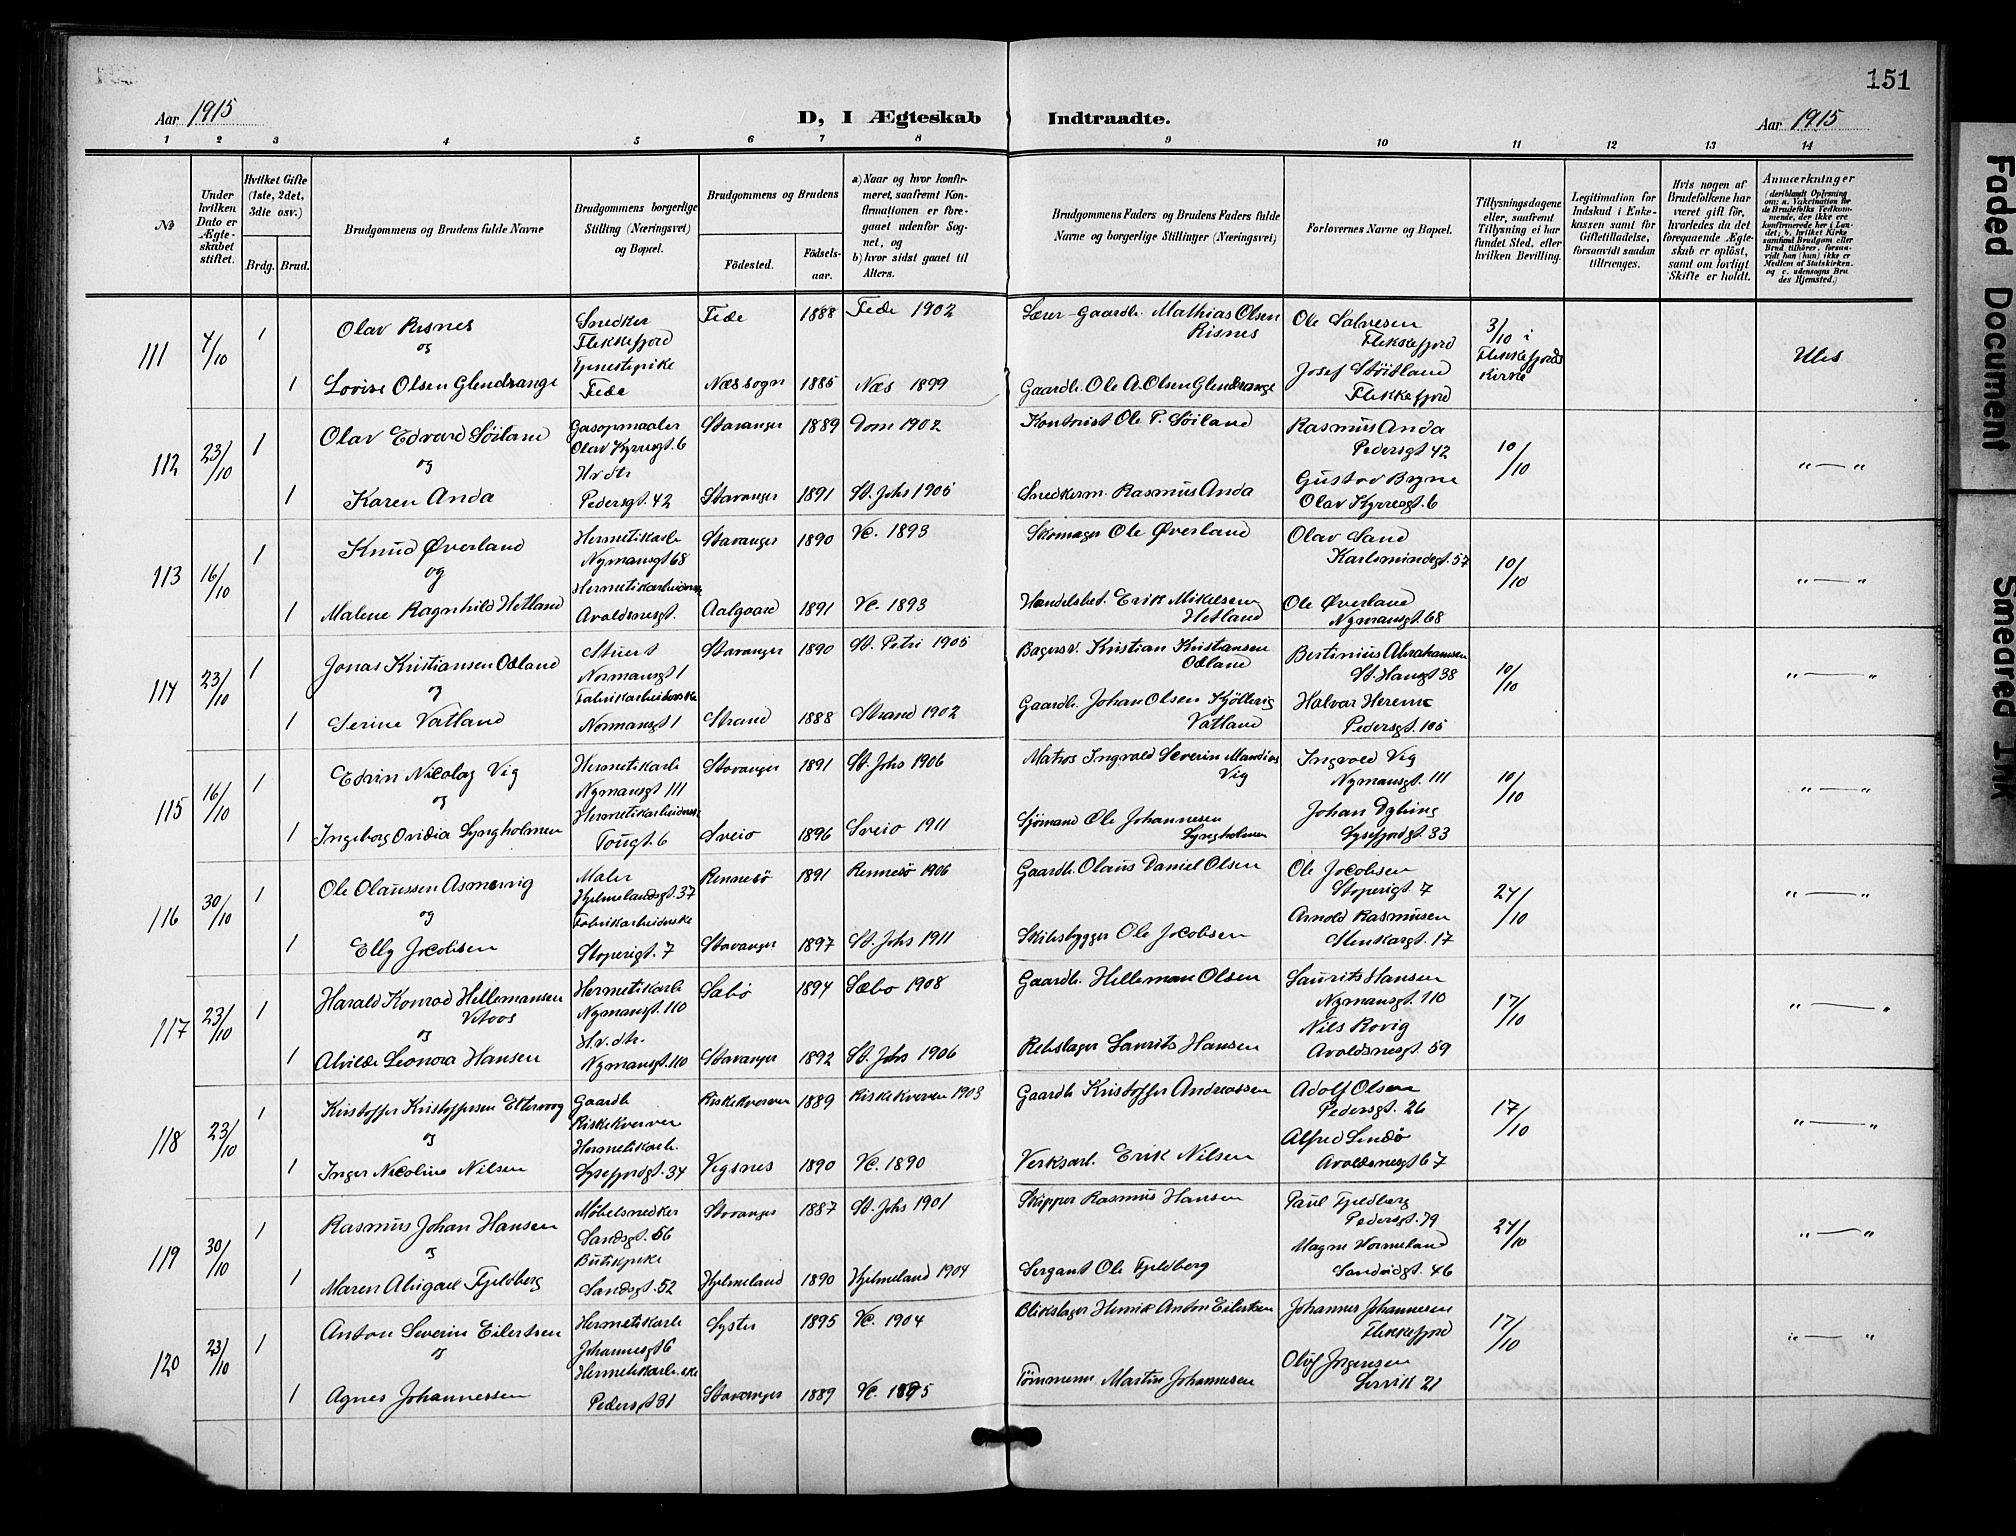 151
Aar 1915
D, I Ægteskab Indtraadte.
Aar 1915
1 2 3 4 5 6 7 8 9 10 11 12 13 14
№
Under hvilken Dato er Ægteskabet stiftet.
Hvilket Gifte (1ste, 2det, 3die osv.)
Brdg. Brud.
Brudgommens og Brudens fulde Navne
Brudgommens borgerlige Stilling (Næringsvei) og Bopæl.
Brudgommens og Brudens
Fødested.
Fødsels-aar.
a) Naar og hvor konfirmeret, saafremt Konfirmationen er foregaaet udenfor Sognet, og
b) hvor sidst gaaet til Alters.
Brudgommens Faders og Brudens Faders fulde Navne og borgerlige Stillinger (Næringsvei)
Forlovernes Navne og Bopæl.
Tillysningsdagene eller, saafremt Tillysning ei har fundet Sted, efter hvilken Bevilling.
Legitimation for Indskud i Enkekassen samt for Giftetilladelse, forsaavidt saadan tiltrænges.
Hvis nogen af Brudefolkene har været gift før, hvorledes da det foregaaende Ægteskab er opløst, samt om lovligt Skifte er holdt.
Anmærkninger (deriblandt Oplysning om: a. Vakcination for de Brudefolks Vedkommende, der ikke ere konfirmerede her i Landet; b. hvilket Kirkesamfund Brudgom eller Brud tilhører, forsaavidt han (hun) ikke er Medlem af Statskirken; og c. udensogns Brudes Hjemsted.)
111 4/10 1 Olav Risnes Snedker Flekkefjord Fede 1888 Fede 1902 Gaardb. Mathias Olsen Risnes Ole Salvesen Flekkefjord 3/10 i Flekkefjords Kirke
og Tjenestepike Josef Støitland
1 Lovise Olsen Glendrange Fede Næs sogn 1885 Næs 1899 Gaardb. Ole A. Olsen Glendrange Flekkefjord
112 23/10 1 Olav Edvard Søiland Gasopmaaler Olav Kyrresgt 6 Stavanger 1889 Dom 1902 Kontorist Ole P. Søiland Rasmus Anda Pedersgt 42 10/10 " — "
og Hv dtr Gustav Bryne
1 Karen Anda Pedersgt. 42 Stavanger 1891 St. Johs 1905 Snedkerm. Rasmus Anda Olav Kyrresgt. 6
113 16/10 1 Knud Øverland Hermetikarb Nymansgt 68 Stavanger 1890 Vc. 1893 Skomager Ole Øverland Olav Sand Karlsmindegt. 57 10/10 " — "
og Hermetikarbeiderske
1 Malene Ragnhild Hetland Avaldsnesgt. Aalgaard 1891 Vc. 1893 Handelsbet. Erik Mikelsen Hetland Ole Øverland Nymansgt. 68
114 23/10 1 Jonas Kristiansen Odland Stuert Normansgt 1 Stavanger 1890 St. Petri 1905 Kristian Kristansen Odland Bertinius Abrahamsen St. Hansgt 38 10/10 " — "
og Fabrikarbeiderske
1 Serine Vatland Normansgt 1 Strand 1888 Strand 1902 Gaardb. Johan Olsen Kjøllevig Vatland Halvar Pedersgt. 105
115 16/10 1 Edvin Nicolay Vig Hermetikarb Nymansgt 111 Stavanger 1891 St. Johs 1906 Matros Ingvald Severin Mandius Vig Ingvald Vig Nymansgt. 111 10/10 " — "
og Hermetikarbeiderske
1 Ingeborg Ovidia Lyngholmen Tougt. 6 Sveio 1896 Sveio 1911 Sjømand Ole Johannesen Lyngholmen Johan Dybing Lysefjordgt. 33
116 30/10 1 Ole Olaussen Asmervig Maler Hjelmelandsgt. 37 Rennesø 1891 Rennesø 1906 Gaardb. Olaus Daniel Olsen Ole Jacobsen Støperigt. 7 24/10 " — "
og Fabrikarbeiderske Arnold Rasmusen
1 Elly Jacobsen Støperigt. 7 Stavanger 1897 St. Johs 1911 Skibsbygger Ole Jacobsen Stenkargt. 17
117 23/10 1 Harald Konrad Hellemansen Hermetikarb Nymansgt. 110 Sæbø 1894 Sæbø 1908 Gaardb. Helleman Olsen Laurits Hansen Nymansgt. 110 17/10 " — "
og Hv. dtr. Nils Rovig
1 Alvilde Leonora Hansen Nymansgt. 110 Stavanger 1892 St. Johs 1906 Rebslager Laurits Hansen Avaldsnesgt 59
118 23/10 1 Kristoffer Kristoffersen Gaardb Riskekverver Riskekverven 1889 Riskekverven 1903 Gaardb Kristoffer Andreassen Adolf Olsen Pedersgt. 26 17/10 " — "
og Hermetikarb. Alfred Lindø
1 Inger Nicoline Nilsen Lysefjordgt. 34 Vigsnes 1890 Vc. 1890 Verksarb. Erik Nilsen Avaldsnesgt 67
119 30/10 1 Rasmus Johan Hansen Møbelsnedker Sandsgt. 56 Stavanger 1887 St. Johs 1901 Skipper Rasmus Hansen Paul Fjeldberg Pedersgt. 79 24/10 " — "
og Butikpike Magne Vormeland
1 Maren Abigael Fjeldberg Sandsgt. 52 Hjelmeland 1890 Hjelmeland 1904 Sergant Ole Fjeldberg Sandeidgt. 46
120 23/10 1 Anton Severin Eilertsen Hermetikarb Johannesgt 6 Lyster 1895 Vc. 1904 Blikslager Henrik Anton Eilertsen Johannes Johannesen Flekkefjord 17/10 " — "
og Hermetikarb.ske Oluf Jørgensen
1 Agnes Johannessen Pedersgt 91 Stavanger 1889 Vc. 1895 Tømmerm Martin Johannesen Lervik 21
Faded Document
Smeared Ink